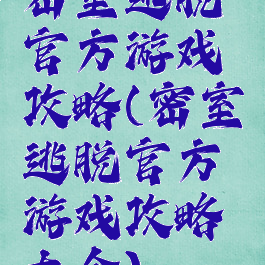 密室逃脱
官方游戏
攻略(密室
逃脱官方
游戏攻略
大全)